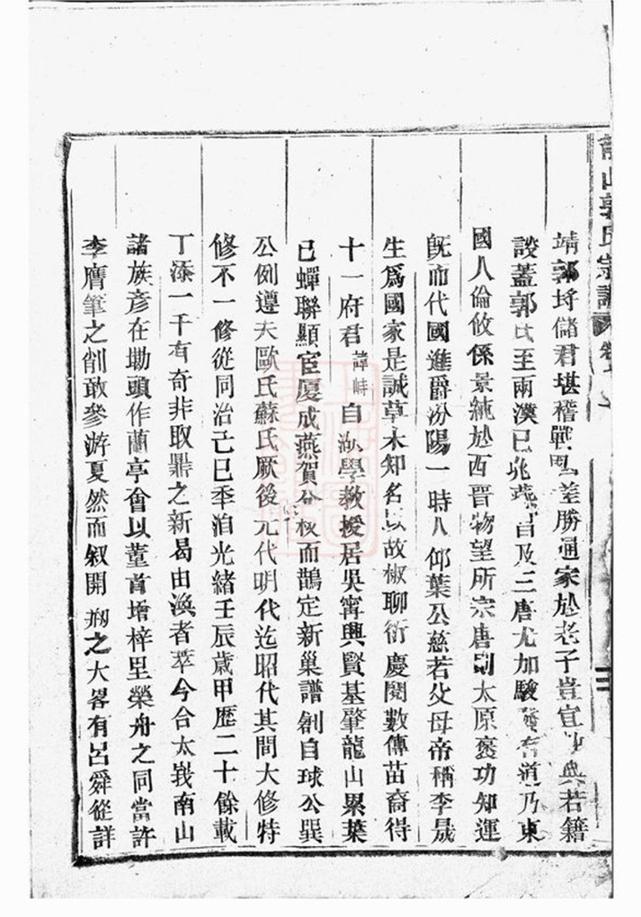 龍山郭氏宗譜 卷之
靖郭好儲君堪稽戰國差勝通家於老子豈宜典若籍
談蓋郭氏至兩漢已兆自及三唐尤加駿有道乃東
國人倫攸係景純於西晉物望所宗唐則太原褒功知運
旣而代國進爵汾陽一時人仰葉公慈若父母帝稱李晟
生爲國家是誠草木知名以故椒聊衍慶閱數傳苗裔得
十一府君諱峙自湖學教授居吳寗興賢基肇龍山累葉
已蟬聯顯宦厦成燕賀而鵲定新巢譜創自球公巽
公例遵夫歐氏蘇氏厥後元代明代迄昭代其間大修特
修不一修從同治己巳季洎光緒壬辰歲甲歷二十餘載
丁添一千有奇非取鼎之新曷由渙者萃今合太峩南山
諸族彥在勘頭作蘭亭會以董首增梓里榮舟之同當許
李膺筆之削敢參游夏然而叙開之大畧有呂舜從詳